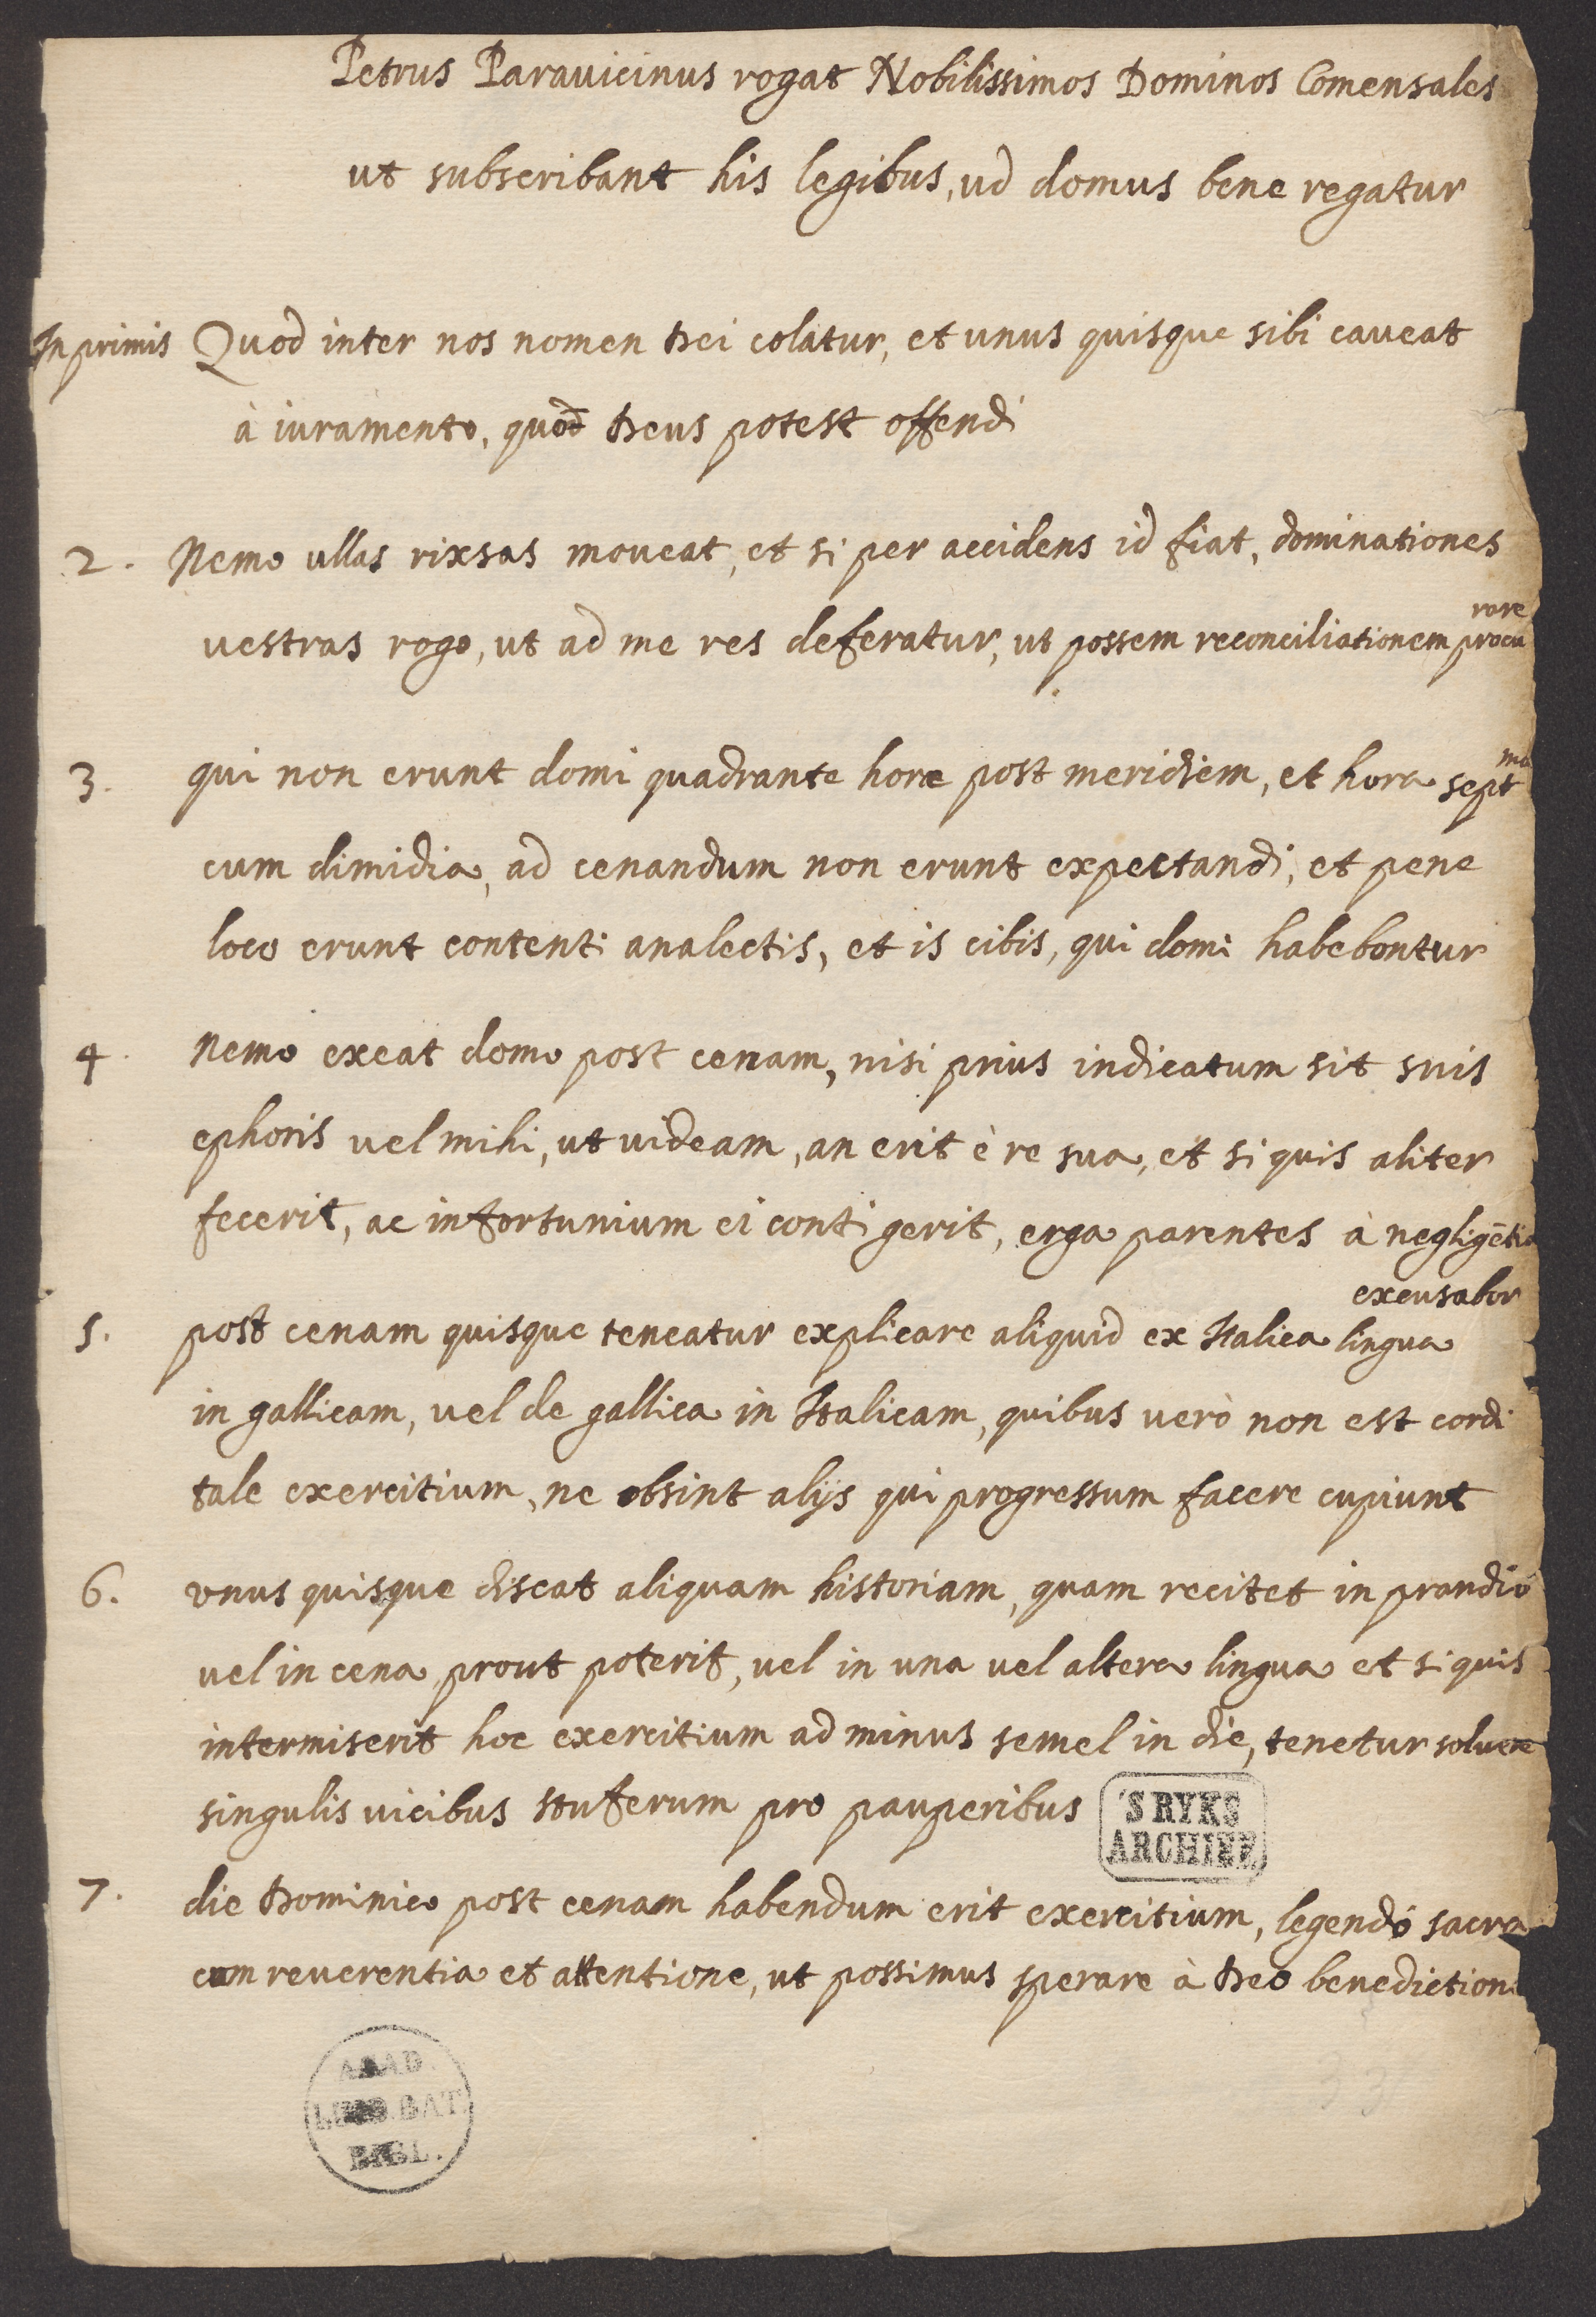 Petrus Paravicinus rogat Nobilissimos Dominos Comensales
ut subscribant his legibus, ud domus bene regatur
Inprimis Quod inter nos nomen Dei colatur, et unus quisque sibi caveat
à iuramento, quod Deus potest offendi
2. Nemo ullas rixsas moveat, et si per accidens id fiat, dominationes
vestras rogo, ut ad me res deferatur, ut possem reconciliationem procu
rare
3. qui non erunt domi quadrante hore post meridiem, et hora sept
ma
cum dimidia, ad cenandum non erunt expectandi, et pene
loco erunt contenti analectis, et is cibis, qui domi habebontur
4. Nemo exeat domo post cenam, nisi prius indicatum sit suis
ephoris vel mihi, ut videam, an erit è re sua, et si quis aliter
fecerit, ac infortunium ei contigerit, erga parentes à negligētia
excusabor
5. post cenam quisque teneatur explicare aliquid ex Italica lingua
in gallicam, vel de gallica in Italicam, quibus verò non est cordi
tale exercitium, ne obsint alijs qui progressum facere cupiunt
6. vnus quisque discat aliquam historiam, quam recitet in prandio
vel in cena, prout poterit, vel in una vel altera lingua et si quis
intermiserit hoc exercitium ad minus semel in die, tenetur solvere
singulis vicibus stuferum pro pauperibus
'S RYKS
ARCHIEF
7. die Dominico post cenam habendum erit exercitium, legendo sacra
cum reverentia et attentione, ut possimus sperare à Deo benediction
ACAD.
LUGD. BAT.
BIBL.